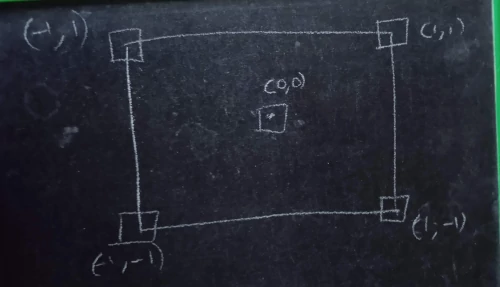 (-1, 1)
(1, 1)
(0,0)
(1, -1)
(-1, -1)